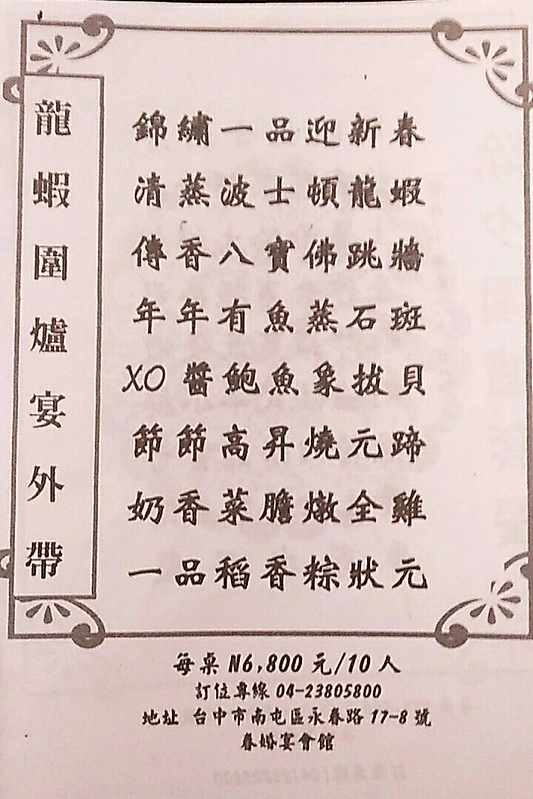 龍蝦圍爐宴外帶
錦繡一品迎新春
清蒸波士頓龍蝦
傳香八寶佛跳牆
年年有魚蒸石斑
XO醬鮑魚象拔貝
節節高昇燒元蹄
奶香菜膽燉全雞
一品稻香粽狀元
每桌 N6,800 元/10人
訂位專線 04-23805800
地址 台中市南屯區永春路 17-8 號
春婚宴會館